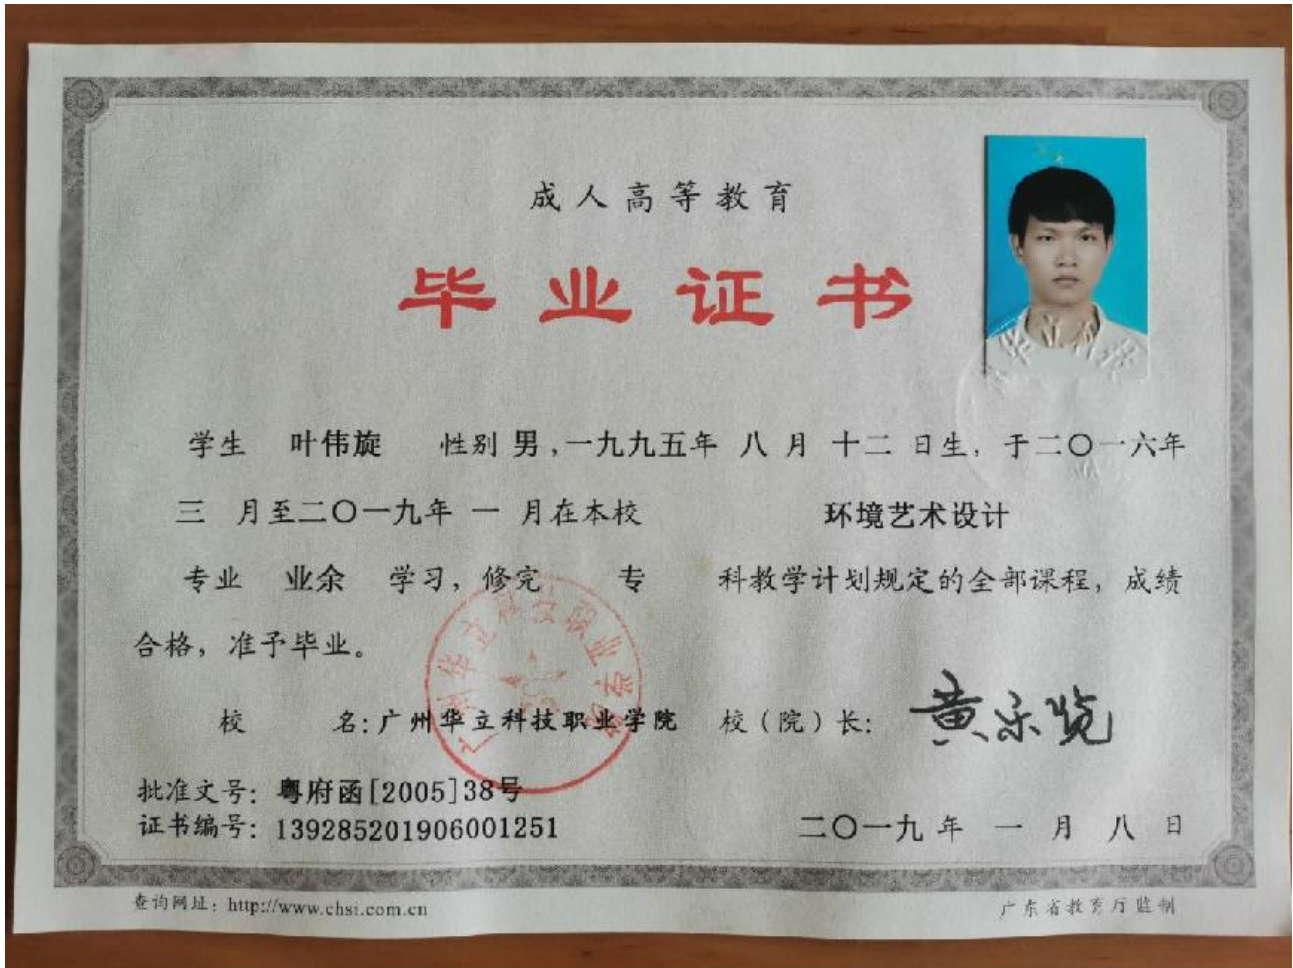 成人高等教育
毕业证书
学生 叶伟旋 性别 男,一九九五年 八 月 十二 日生,于二〇一六年
三 月至二〇一九年 一 月在本校 环境艺术设计
专业 业余 学习,修完 专 科教学计划规定的全部课程,成绩
合格,准予毕业。
校 名:广州华立科技职业学院 校(院)长:
广州华立科技职业学院
批准文号:粤府函[2005]38号
证书编号:139285201906001251
二〇一九 年 一 月 八 日
查询网址:http://www.chsi.com.cn
广东省教育厅监制